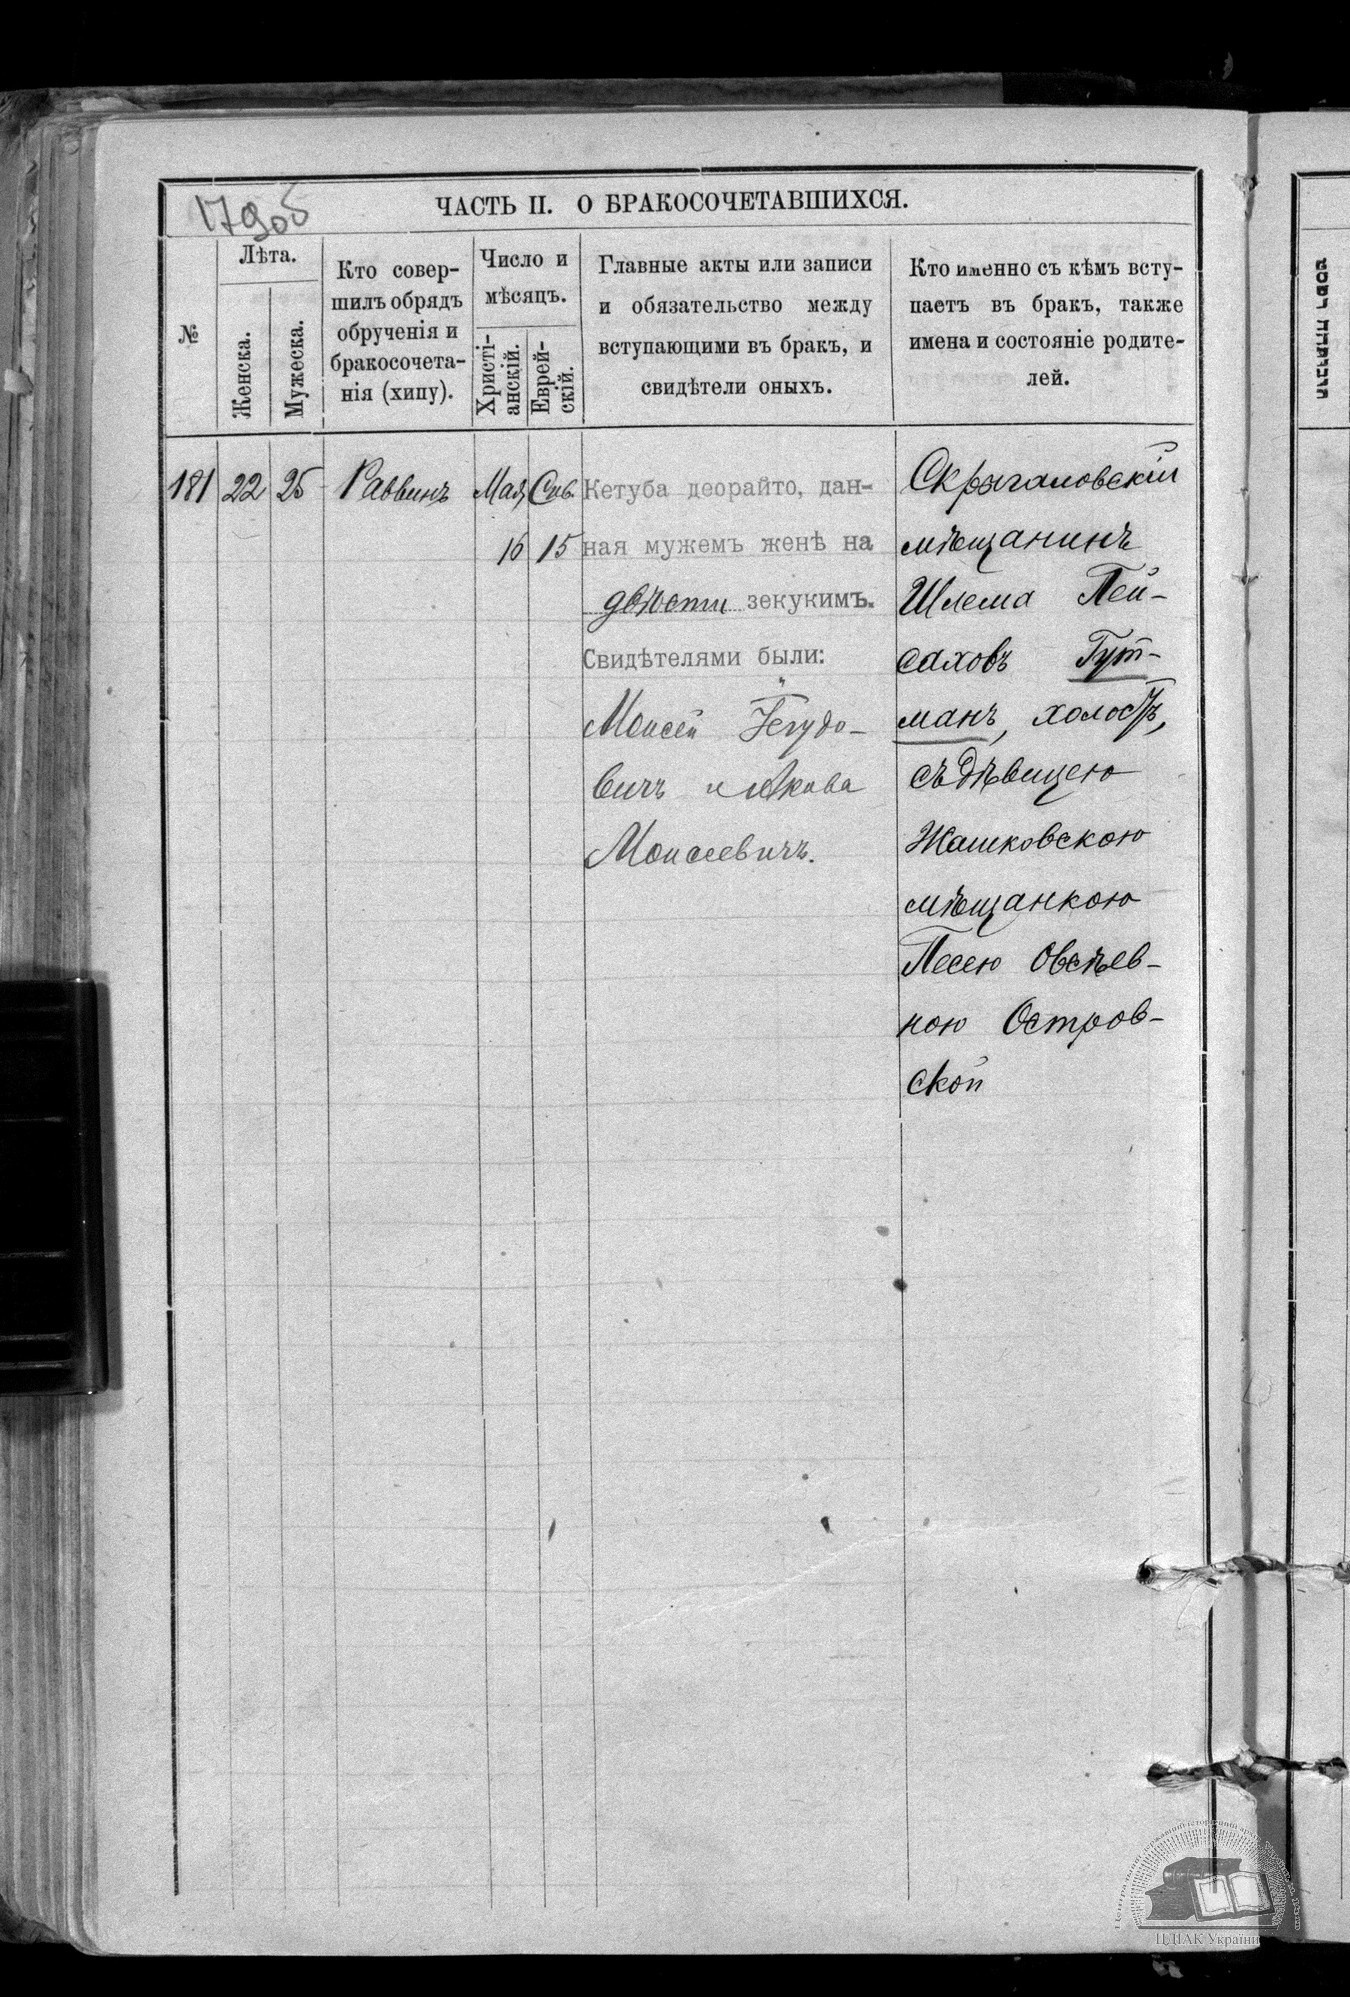 179об
ЧАСТЬ II. О БРАКОСОЧЕТАВШИХСЯ.
№
Лѣта.
Женска.
Мужеска.
Кто совер-
шилъ обрядъ
обрученія и
бракосочета-
нія (хипу).
Число и
мѣсяцъ.
Христі-
анскій.
Еврей-
скій.
Главные акты или записи
и обязательство между
вступающими въ бракъ, и
свидѣтели оныхъ.
Кто именно съ кѣмъ всту-
паетъ въ бракъ, также
имена и состояніе родите-
лей.
181 22 25 Раввинъ Мая Сив.
16 15
Кетуба деорайто, дан-
ная мужемъ женѣ на
двѣсти зекукимъ.
Свидѣтелями были:
Моисей Іегудо-
вичъ и Акива
Моисеевичъ.
Скрыгаловскій
мѣщанинъ
Шлема Пей-
саховъ Гут-
манъ, холостъ,
съ дѣвицею
Жашковскою
мѣщанкою
Песею Овсѣев-
ною Остров-
ской
ЦДІАК України